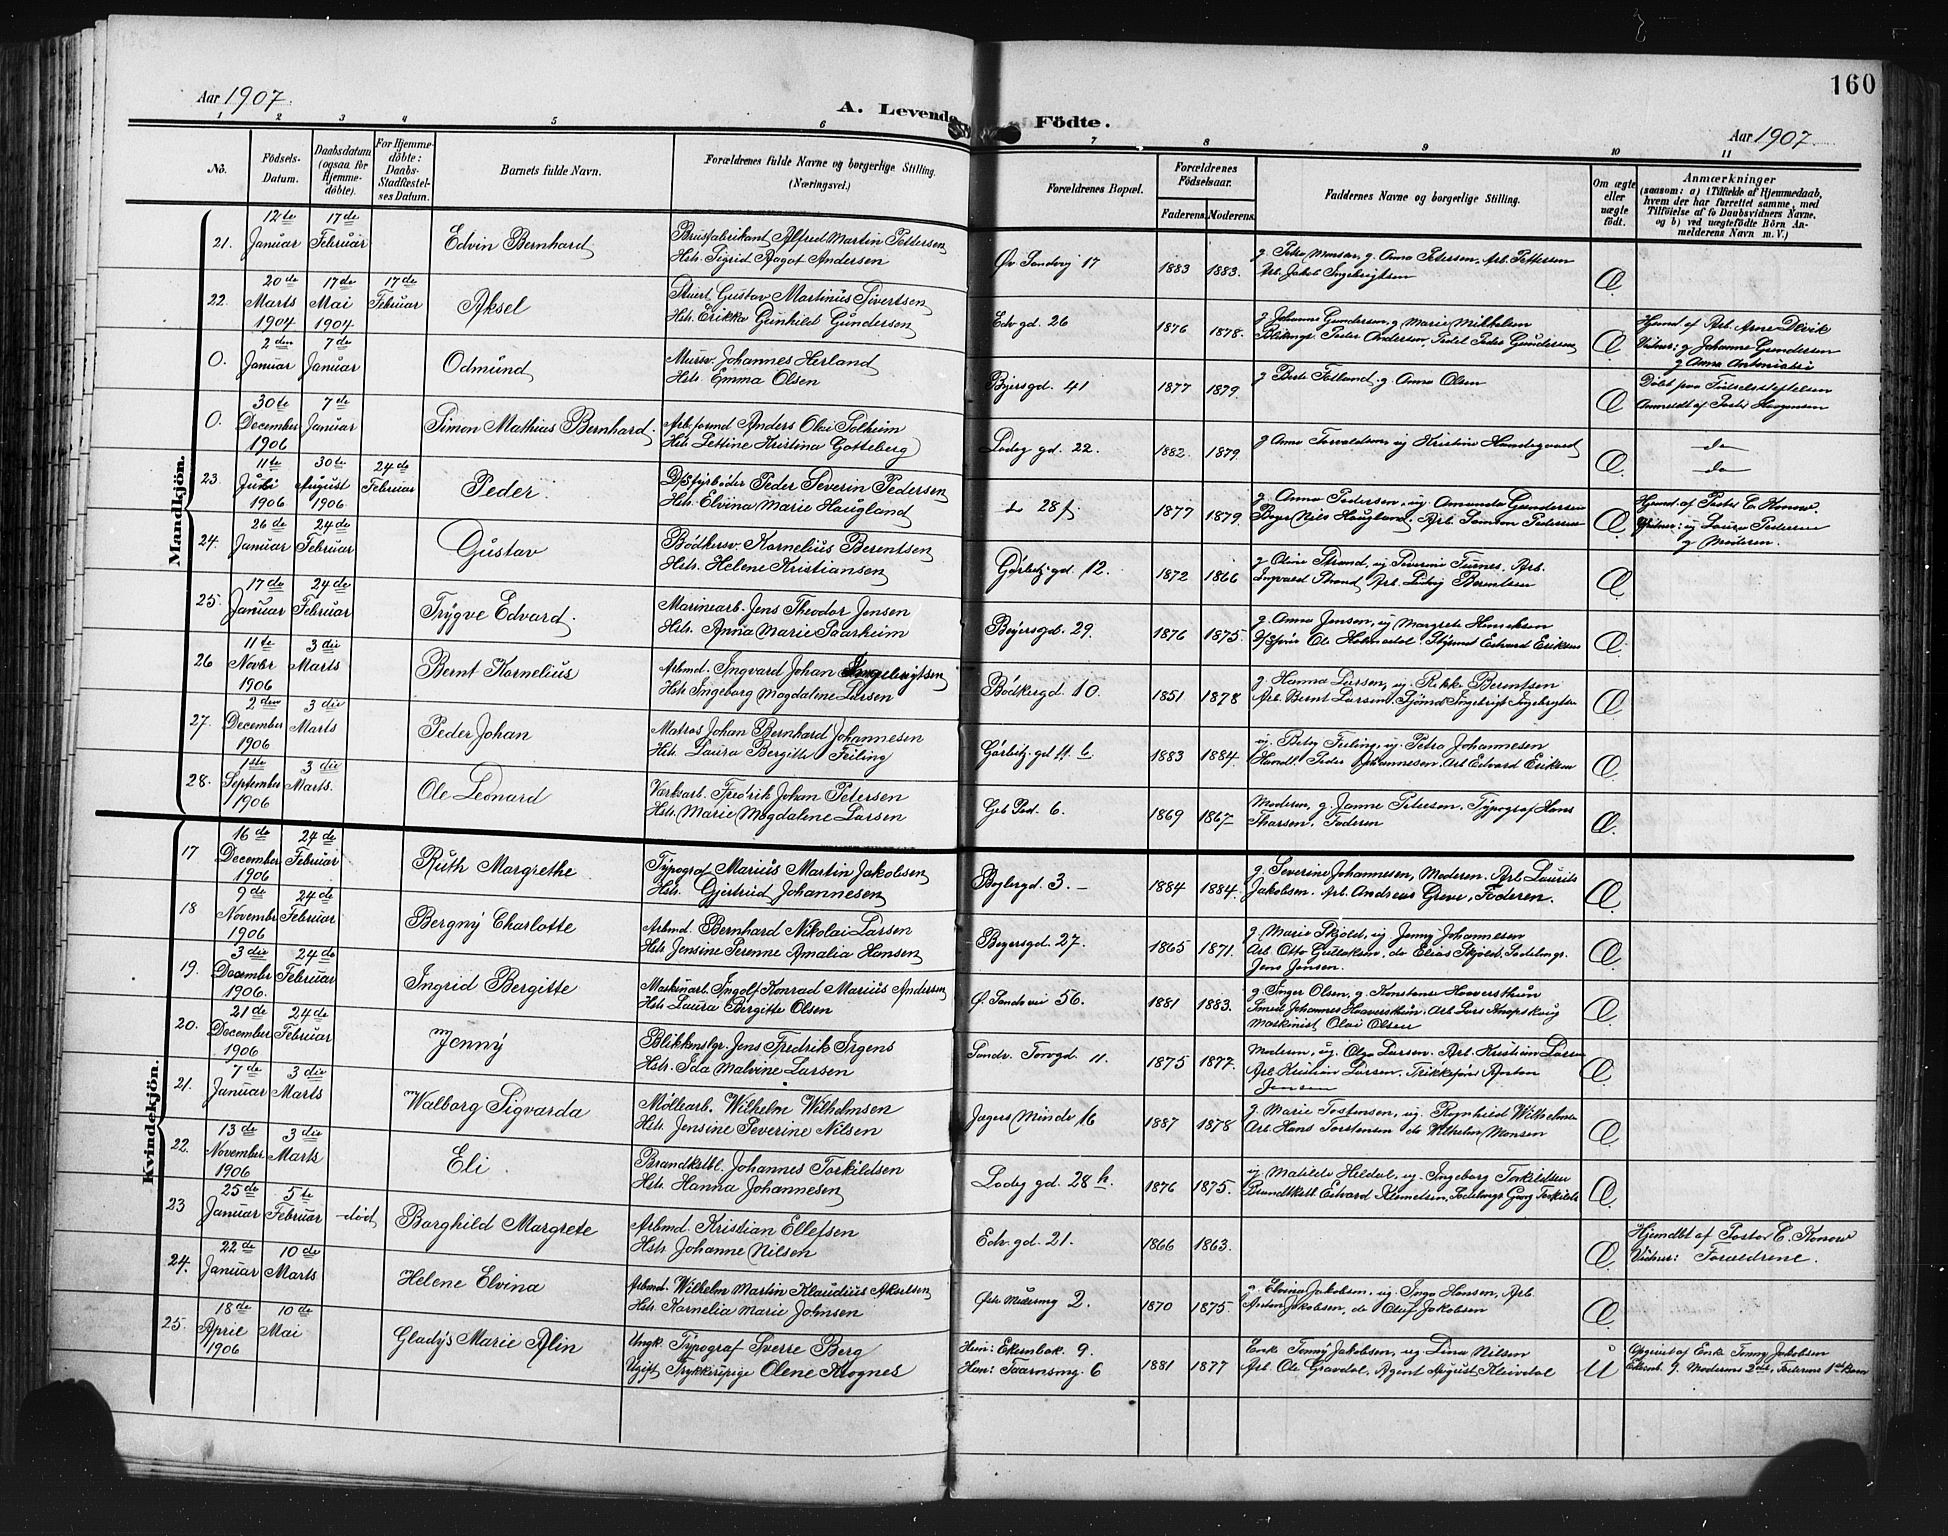 160
Aar 1907.
A. Levende Födte.
Aar 1907.
1 2 3 4 5 6 7 8 9 10 11
No.
Födsels-Datum.
Daabsdatum (ogsaa for Hjemme-döbte).
For Hjemme-döbte: Daabs-Stadfæstel-ses Datum.
Barnets fulde Navn.
Forældrenes fulde Navne og borgerlige Stilling. (Næringsvei.)
Forældrenes Bopæl.
Forældrenes Födselsaar.
Faderens. Moderens.
Faddernes Navne og borgerlige Stilling.
Om ægte eller uægte födt.
Anmærkninger
(saasom: a) i Tilfælde af Hjemmedaab, hvem der har forrettet samme, med Tilföielse af to Daabsvidners Navne, og b) ved uægtefödte Börn An-melderens Navn m. V.)
Mandkjön.
21. 12te Januar 17de Februar Edvin Bernhard
Brusfabrikant Alfred Martin Pettersen
Hstr. Sigrid Aagot Andersen
Øv Sandvig 17 1883 1883.
g. Petra Monsen, g. Anna Petersen, Arb. Pettersen
Arb. Jakob Ingebrigtsen Æ.
22. 20de Marts 1904 17de Mai 1904 17de Februar Aksel
Stuert Gustav Martinus Sivertsen
Hstr. Erikka Gunhild Gundersen
Edv. gd. 26 1876 1878.
g. Johanne Gundersen, g. Marie Mikkelsen
Peder Andersen, Peder Gundersen Æ
Hjemd. af Arb. Arne Dlvik
Vidner: g. Johanne Gundersen
g. Anna Antoniatsi
0. 2den Januar 7de Januar Odmund
Mursv. Johannes Herland
Hstr. Emma Olsen
Beyersgd. 41 1877 1879.
g. Berte Totland, g. Anna Olsen Æ
Döbt paa Födselsstiftelsen
Anmeldt af Pastor Haagensen
0. 30te December 1906 7de Januar Simon Mathias Bernhard.
Arb.formd Anders Olai Solheim
Hstr. Lettine Kristina Gotteberg
Lodg gd. 22. 1882. 1879.
g. Anna Torvaldsen, ug. Kristine Æ.
do
do
23. 11te Juli 1906 30te August 1906 24de Februar Peder.
D/S fyrböder Peder Severin Pedersen
Hstr. Elvina Marie Haugland
do 28 f. 1877 1879.
g. Anna Pedersen, ug. Amanda Gundersen
Nils Haugland. Arb. Simon Pedersen Æ.
Hjemd. af Pastor C. Konow.
Vidner: ug. Laura Pedersen
g. Moderen.
24. 26de Januar 24de Februar Gustav
Bödkersv. Kornelius Berentsen
Hstr. Helene Kristiansen
Görbitz gd. 12. 1872 1866
g. Oline Strand, ug. Severine Tunes, Arb.
Ingvald Strand, Arb. Ludvig Berentsen Æ
25. 17de Januar 24de Februar Trygve Edvard.
Marinearb. Jens Theodor Jensen
Hstr. Anna Marie Saarheim
Beyersgd. 29. 1876 1875.
g. Anna Jensen, ug. Margrete Henriksen
Ole Holmedal. Edvard Eriksen Æ.
26 11te Novbr 1906 3die Marts Bernt Kornelius
Arbmd. Ingvard Johan Ingebrigtsen
Hstr. Ingeborg Magdalene Larsen
Bödkergd. 10. 1851 1878
g. Hanna Larsen, ug. Rikke Berentsen
Arb. Bernt Larsen, Sjömd. Ingebrigt Ingebrigtsen Æ
27. 2den December 1906 3die Marts Peder Johan
Matros Johan Bernhard Johannesen
Hstr. Laura Bergitte Feiling
Görbitz gd. 11 b 1883 1884.
ug. Betsy Feiling, ug. Petra Johannesen
Peder Johannesen. Arb. Edvard Eriksen Æ
28. 1ste September 1906 3die Marts. Ole Leonard
Værksarb. Fredrik Johan Petersen
Hstr. Marie Magdalene Larsen
6. 1869 1867
Moderen, g. Janne Petersen, Typograf Hans
Tharsen, Faderen Æ.
Kvindekjön.
17 16de December 1906 24de Februar Ruth Margrethe
Typograf Marius Martin Jakobsen
Hstr. Gjertrud Johannesen
Beglergd. 3. 1884 1884.
g. Severine Johannesen, Moderen. Arb. Laurits
Jakobsen. Arb. Andreas Greve, Faderen. Æ.
18 9de November 1906 24de Februar Bergny Charlotte
Arbmd. Bernhard Nikolai Larsen
Hstr. Jensine Serenne Amalia Hansen
Beyersgd. 27. 1865 1871.
g. Marie Skjold, ug. Jenny Johannesen
Arb. Otto Gullaksen, do Elias Skjold.
Jens Jensen. Æ.
19. 3die December 1906. 24de Februar Ingrid Bergitte
Maskinarb. Ingolf Konrad Marius Andersen
Hstr. Laura Bergitte Olsen
Ø. Sandsvei 56. 1881 1883.
g. Inger Olsen, g. Konstanse Haaversthun
Smed Johannes Haaversthun, Arb. Lars
Maskinist Olai Olsen Æ.
20. 21de December 1906 24de Februar Jenny
Blikkenslgr. Jens Fredrik Irgens
Hstr. Ida Malvine Larsen
Sandv. Torvgd. 11. 1875 1877.
Moderen, ug. Olga Larsen. Arb. Kristian Larsen
Arb. Kristian Larsen. Anton
Jensen Æ.
21. 7de Januar 3die Marts Walborg Sigvarda
Möllearb. Wilhelm Wilhelmsen
Hstr. Jensine Severine Nilsen
Jægers Mindv 16 1887 1878
g. Marie Torstensen, ug. Ragnhild Wilhelmsen
Arb. Hans Torstensen do Wilhelm Monsen Æ
22. 13de November 1906 3die Marts Eli.
Brandkstbl. Johannes Torkildsen
Hstr. Hanna Johannesen
Lodg gd. 28 h. 1876 1875.
ug. Matilde Heldal, ug. Ingeborg Torkildsen
Edvard Klemetsen, Georg Torkildsen Æ
23 25de Januar 5te Februar -död Borghild Margrete
Arbmd. Kristian Ellefsen
Hstr. Johanne Nilsen
Edv. gd. 21. 1866 1863. Æ.
Hjemdbt af Pastor C. Konow
Vidner: Forældrene.
24. 22de Januar 10de Marts Helene Elvina
Arbmd. Wilhelm Martin Klaudius Akselsen
Hstr. Kornelia Marie Johnsen
2. 1870 1875.
g. Elvina Jakobsen, ug. Inga Hansen, Arb.
Anton Jakobsen, do Oluf Jakobsen Æ.
25. 18de April 1906 10de Mai Gladys Marie Alin
Ungk. Typograf Sverre Berg
Ugift Trykkeripige Olene Krognes
Ham: Ekernbak. 9.
Hun: Taarnsmg. 6 1881 1877
Enke Tonny Jakobsen, ug. Dina Nilsen
Arb. Ole Gravdal, Agent August Kleivdal U
Opgivet af Enke Tonny Jakobsen
Ekernb. 9. Moderens 2det, Faderens 1ste Barn